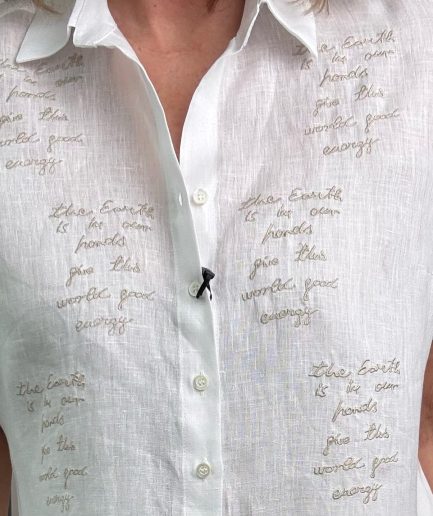 the Earth
is in our
hands
give this
world good
energy
the Earth
is in our
hands
give this
world good
energy
the Earth
is in our
hands
give this
world good
energy
the Earth
is in our
hands
give this
world good
energy
the Earth
is in our
hands
give this
world good
energy
the Earth
is in our
hands
give this
world good
energy